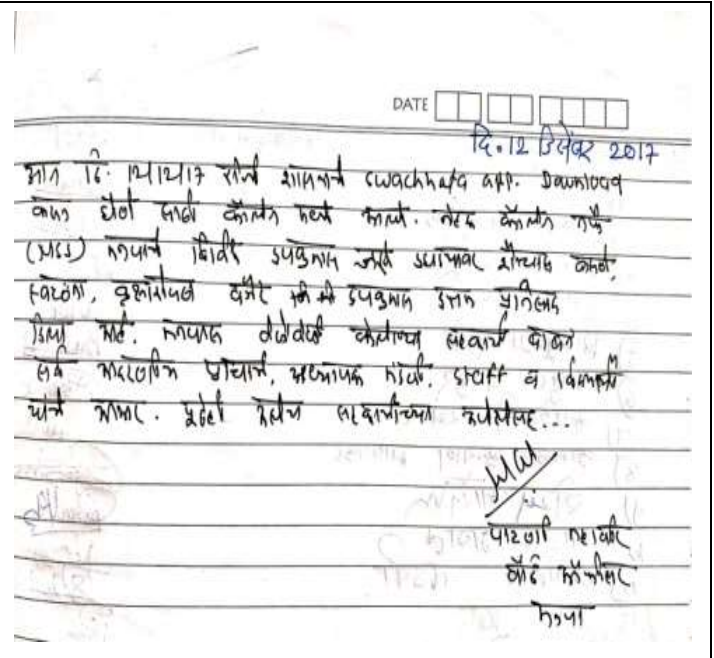 DATE
दि. 12 डिसेंबर 2017
आज दि. 12/12/17 रोजी शासनाचे swachhata app. Download
करून घेणे साठी कॉलेज मध्ये आलो. सदर कॉलेज तर्फे
(NSS) मनपाचे विविध उपक्रमात जसे उघड्यावर शौचास
स्वच्छता, वृक्षारोपण वगैरे उपक्रमास उत्तम प्रतिसाद
दिला आहे. मनपास वेळोवेळी केलेल्या सहकार्य बाबत
सर्व आदरणीय प्राचार्य, अध्यापक मंडळी, staff व विद्यार्थी
यांचे आभार. पुढेही असेच सहकार्याच्या अपेक्षेसह...
वॉर्ड ऑफीसर
मनपा